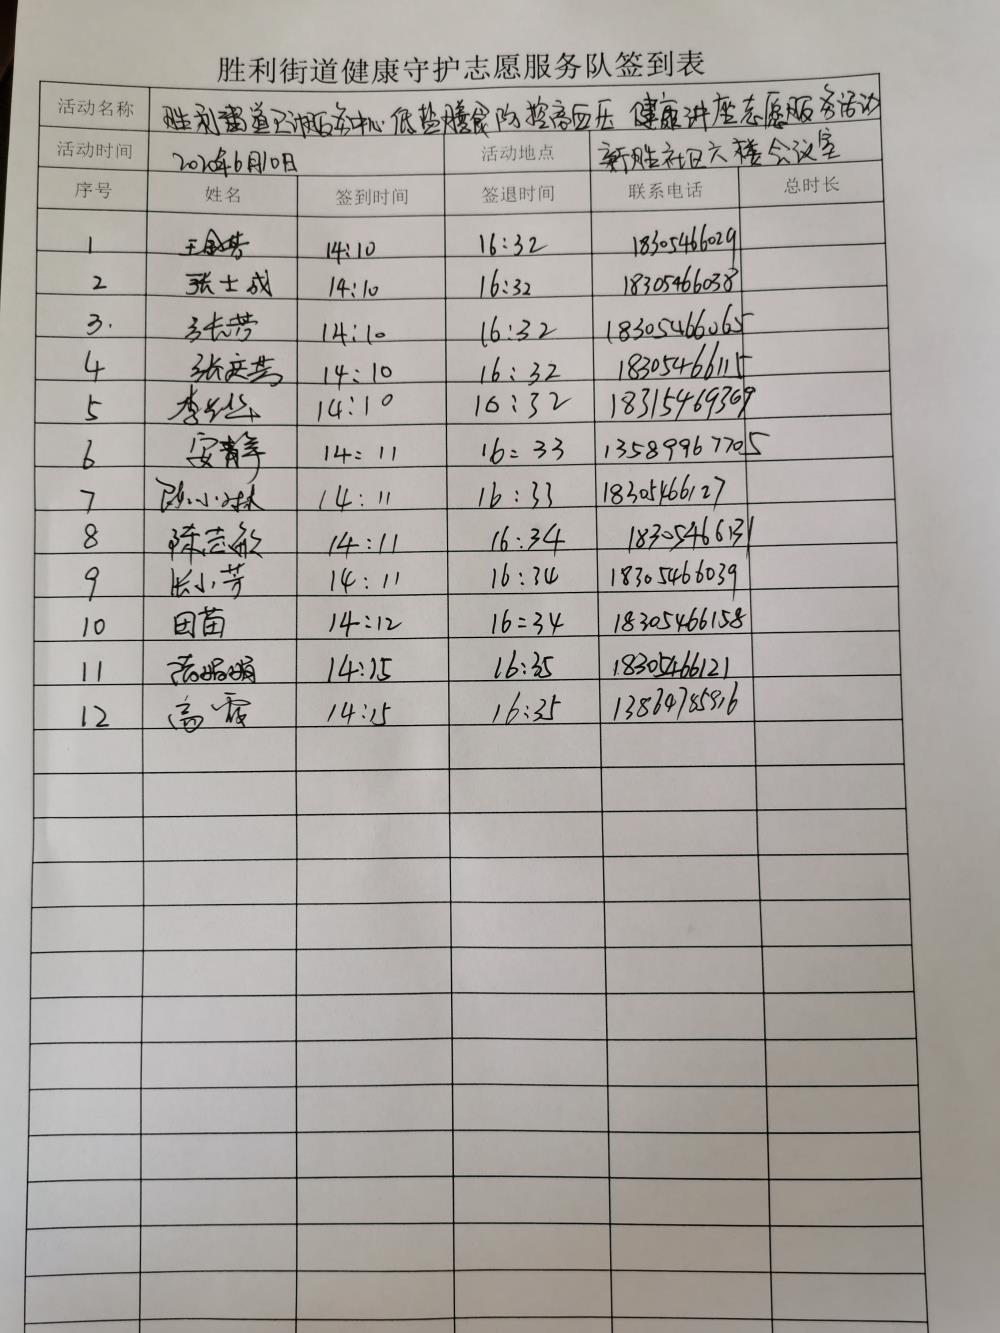 胜利街道健康守护志愿服务队签到表
活动名称 胜利街道卫浦服务中心低盐膳食防控高血压 健康讲座志愿服务活动
活动时间 2020年6月10日 活动地点 新胜社区六楼会议室
序号 姓名 签到时间 签退时间 联系电话 总时长
1 14:10 16:32 18305466029
2 张士成 14:10 16:32 18305466038
3. 张芳 14:10 16:32 18305466065
4 14:10 16:32 18305466115
5 14:10 16:32 18315469369
6 安静 14:11 16:33 13589967705
7 陈小林 14:11 16:33 18305466127
8 陈志敏 14:11 16:34 18305466131
9 张小芳 14:11 16:34 18305466039
10 田苗 14:12 16:34 18305466158
11 14:15 16:35 18305466121
12 高霞 14:15 16:35 13864785916